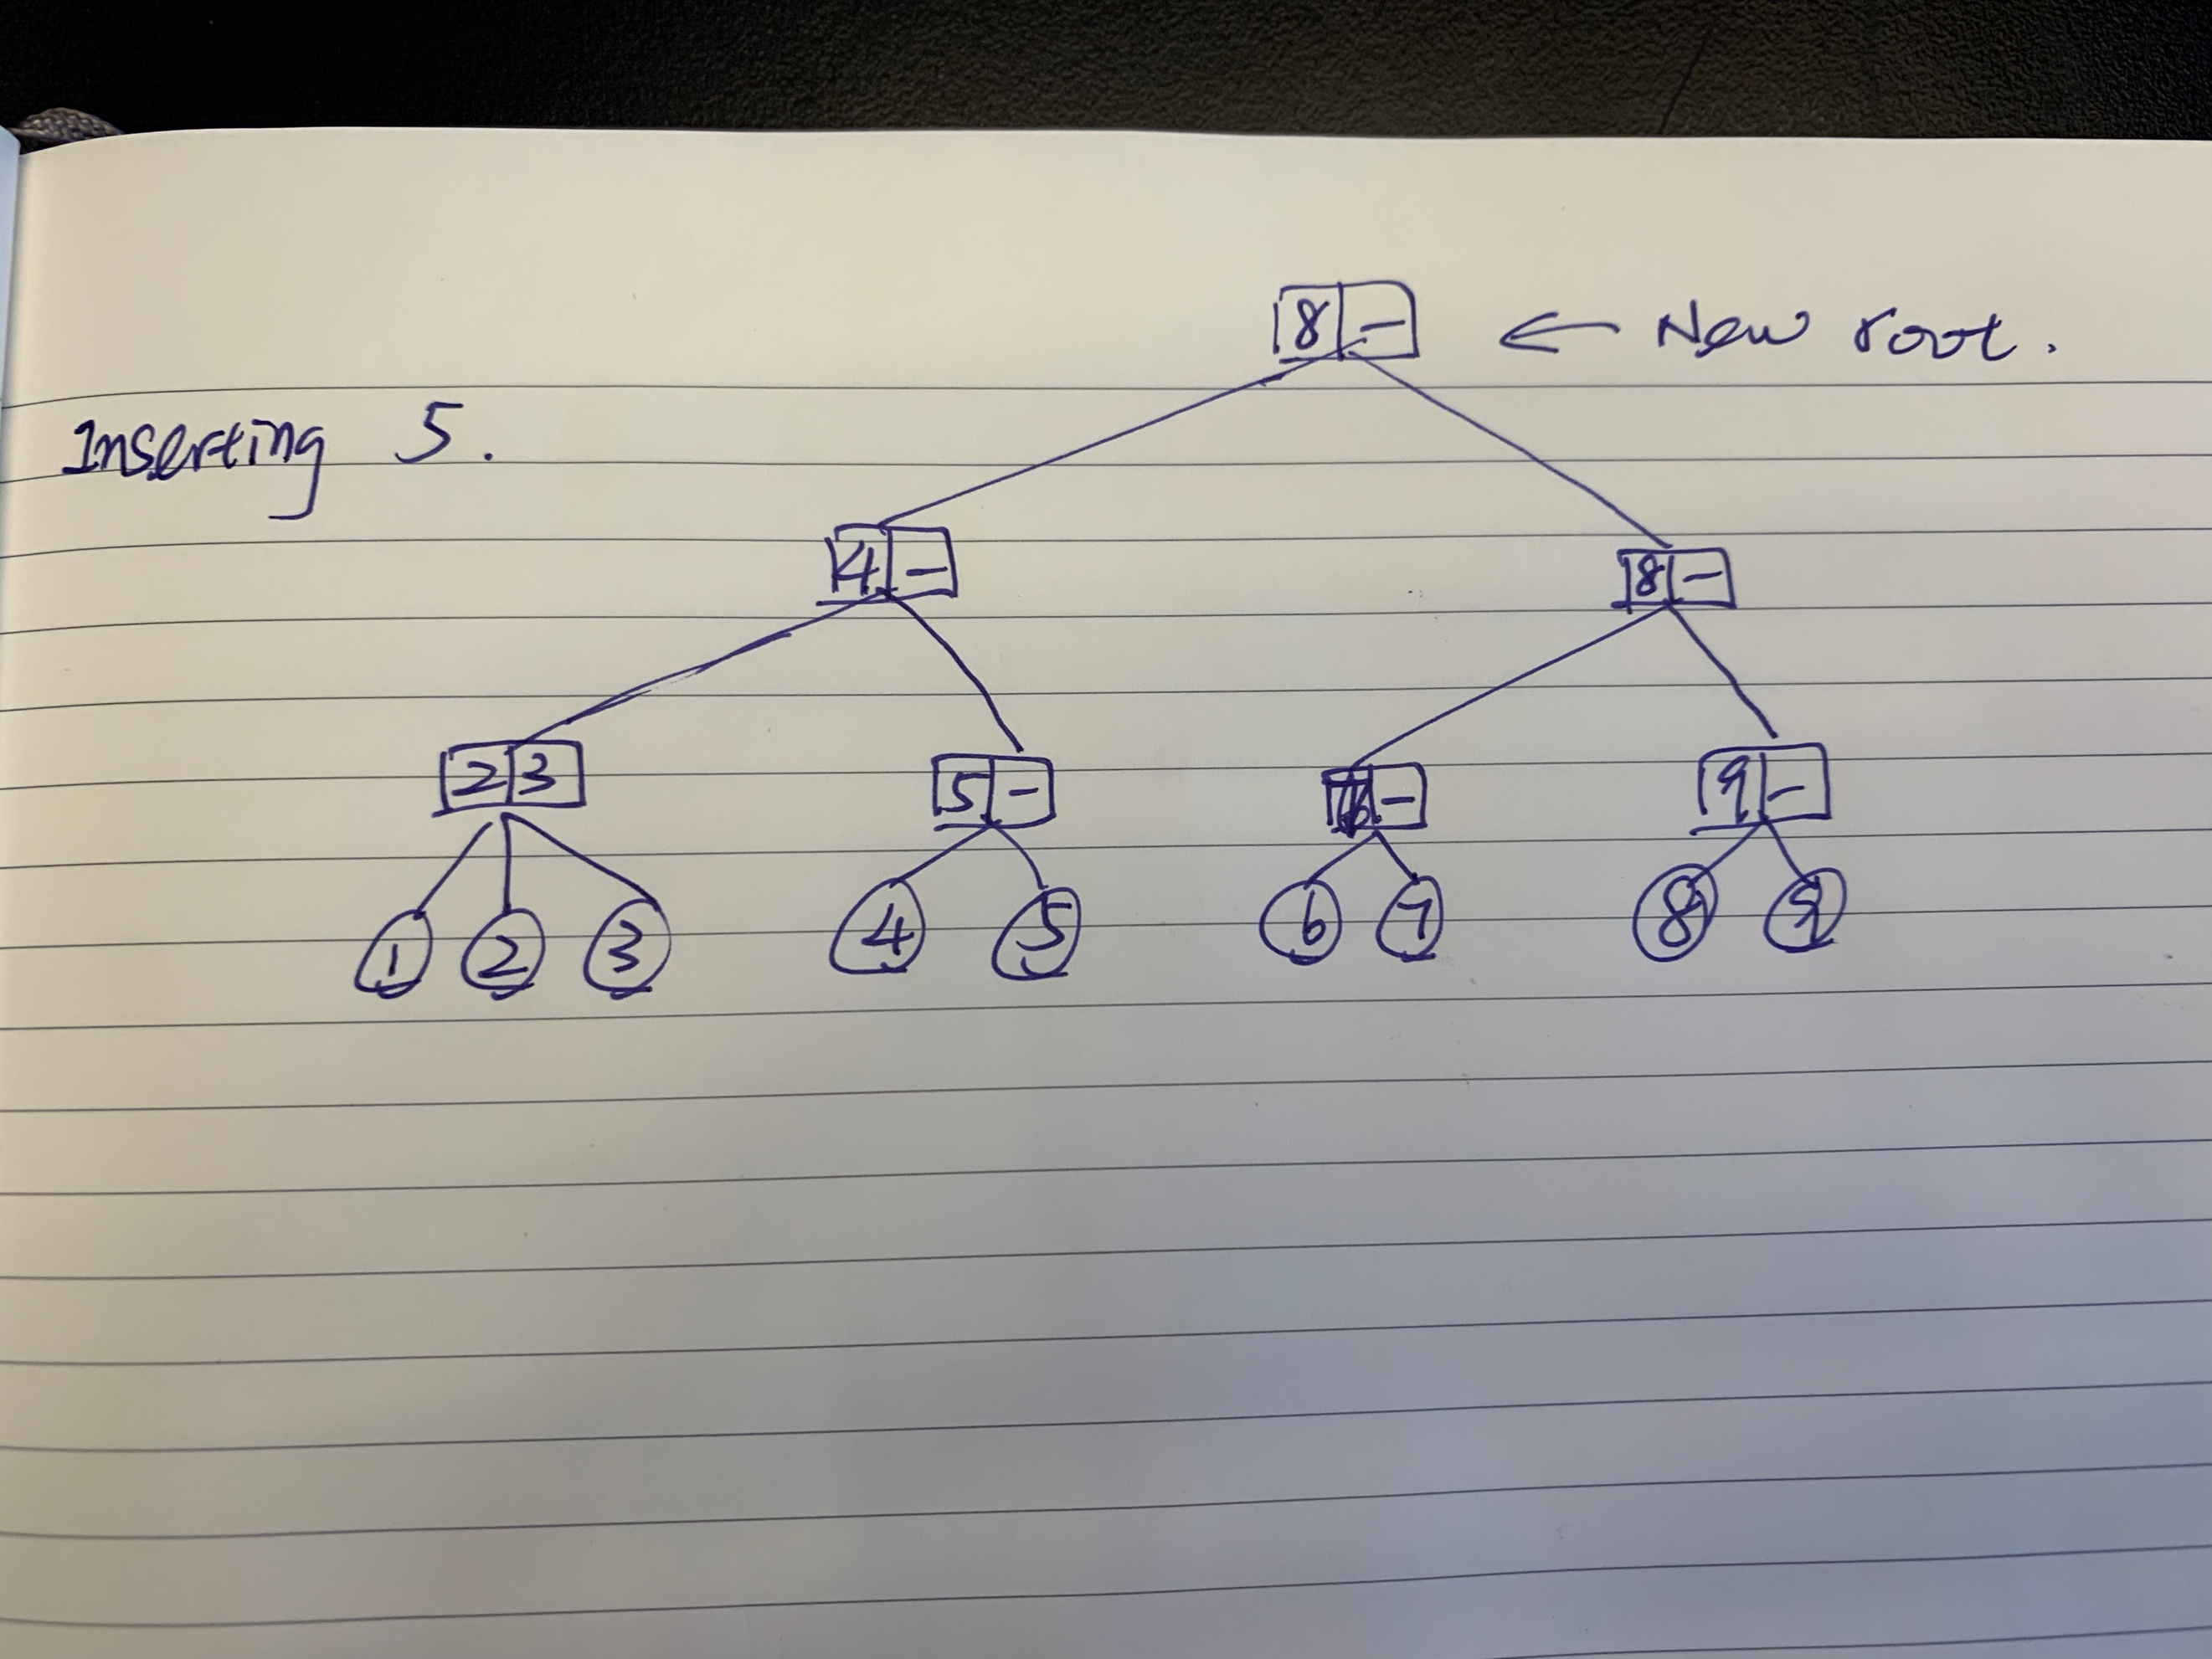 8 – ← New root.
Inserting 5.
4 – 8 –
2 3 5 – – 9 –
1 2 3 4 5 6 7 8 9